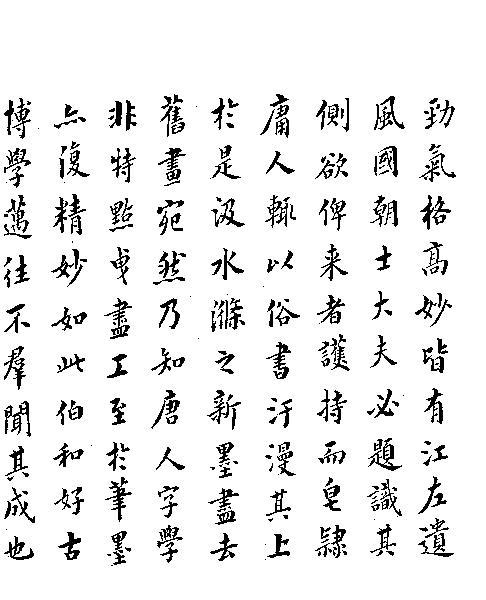 勁氣格高妙皆有江左遺
風國朝士大夫必題識其
側欲俾来者護持而皂隸
庸人輙以俗書汙漫其上
於是汲水滌之新墨盡去
舊畫宛然乃知唐人字學
非特點曳盡工至於筆墨
亦復精妙如此伯和好古
博學邁往不羣聞其成也